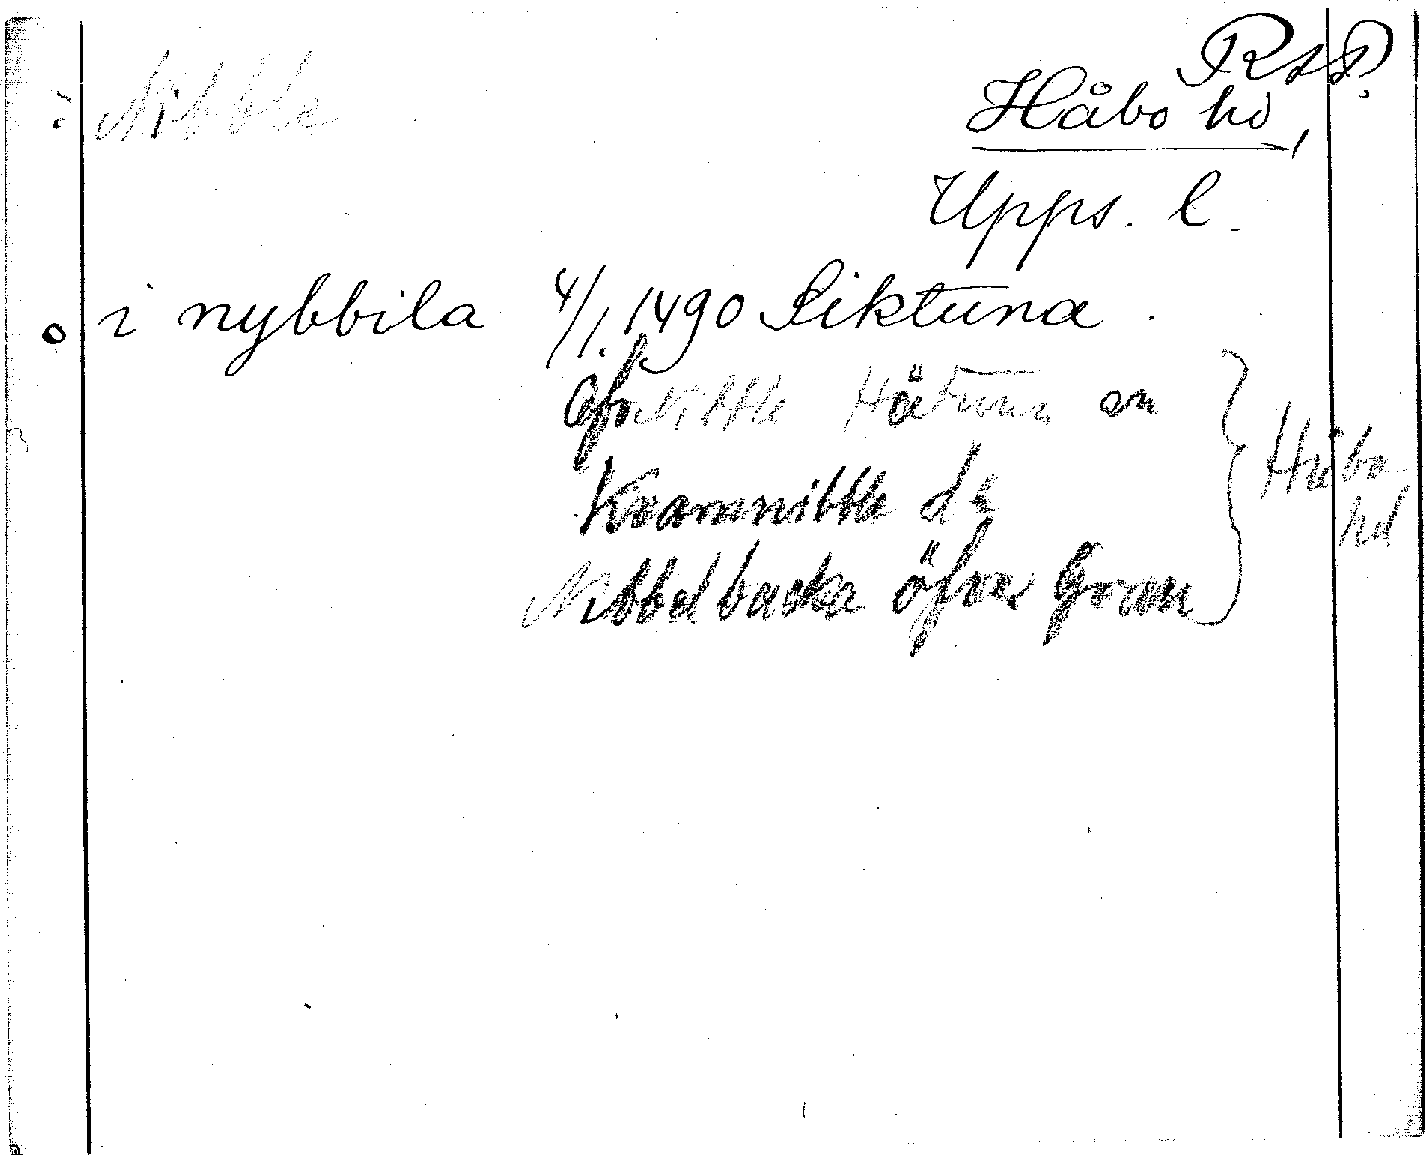 Nibble
RAP.
Håbo hd,
Upps. l.
i nybbila 4/1. 1490 Siktuna
Öfvernibble Håtuna sn
Kvarnnibble ds
Nibbelbacka öfver Gran
Håbo
hd